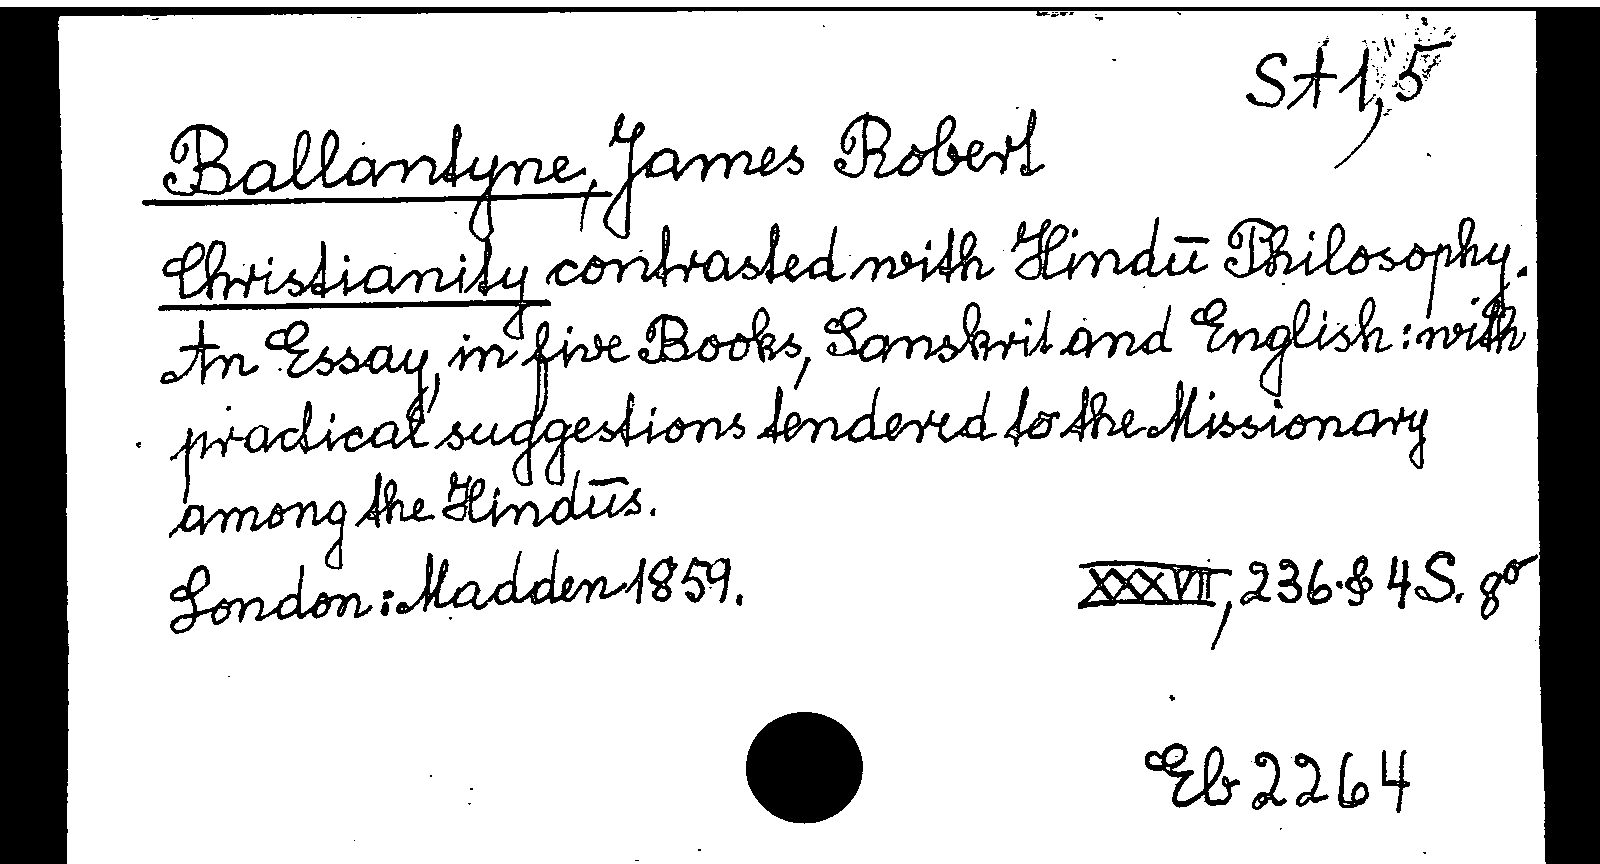 St 1,5
Ballantyne, James Robert
Christianity contrasted with Hindū Philosophy.
An Essay, in five Books, Sanskrit and English: with
practical suggestions tendered to the Missionary
among the Hindūs.
London: Madden 1859. XXXVII, 236 & 4 S. 8°
Eb 2264